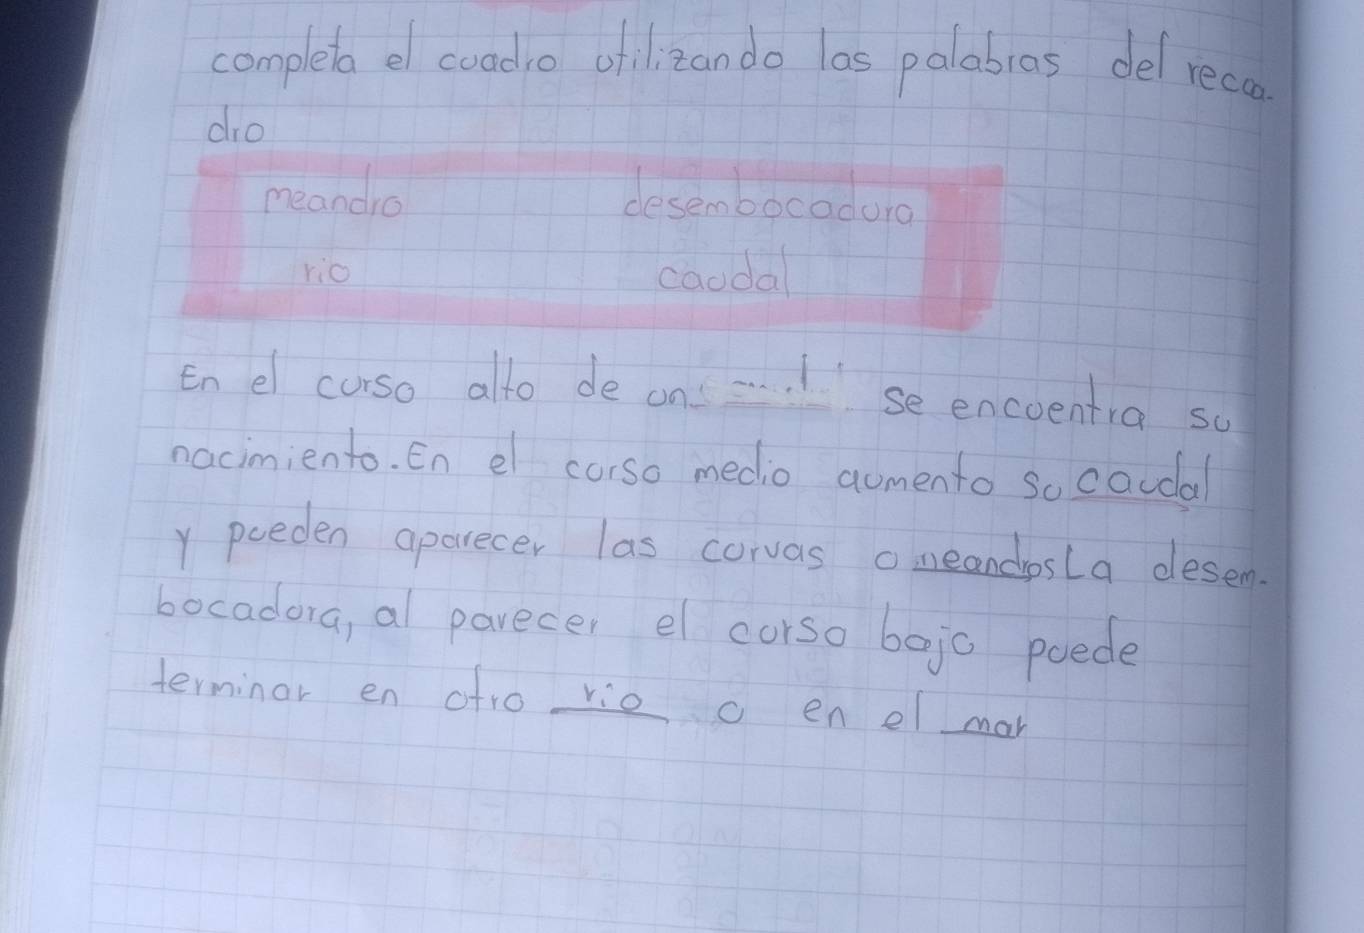 completa el cuadro utilizando las palabras del recua-
dro
meandro desembocadura
rio caudal
En el curso alto de un se encuentra su
nacimiento. En el curso medio aumento su caudal
y pueden aparecer las curvas o meandros La desem-
bocadura, al parecer el curso bajo puede
terminar en otro rio o en el mar